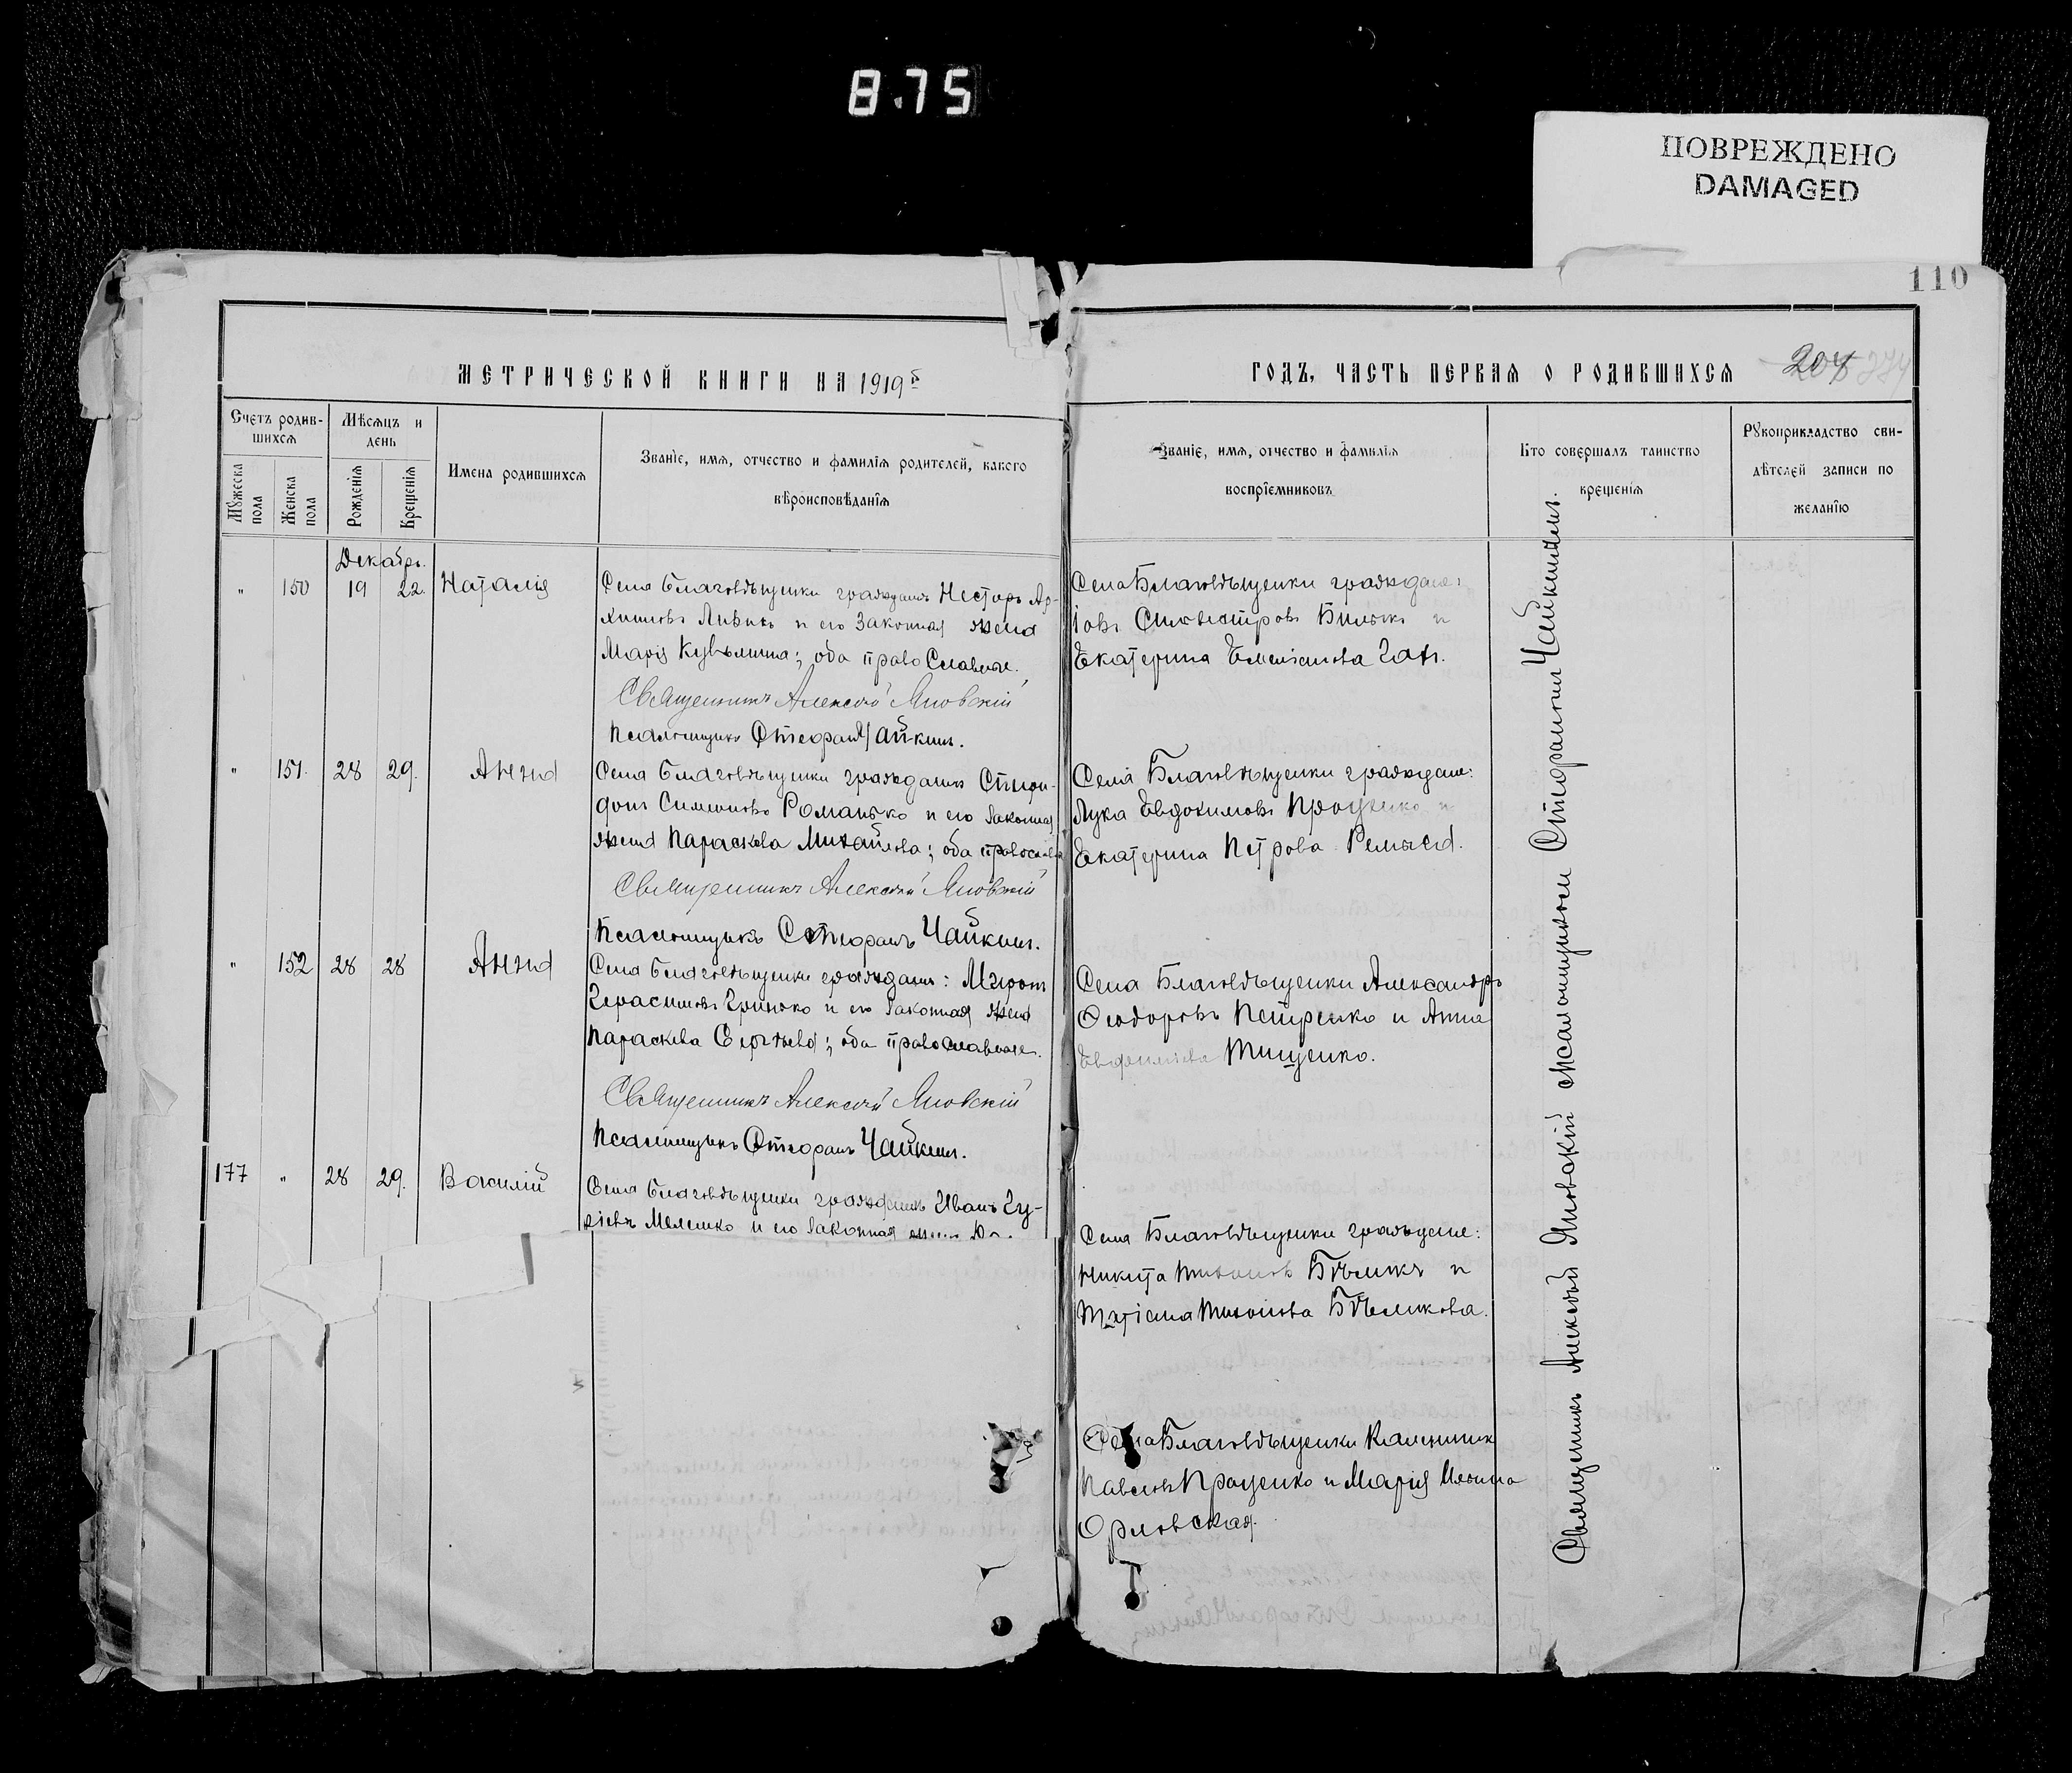 8.75
ПОВРЕЖДЕНО
DAMAGED
110
МЕТРИЧЕСКОЙ КНИГИ НА 1919й
ГОДЪ, ЧАСТЬ ПЕРВАЯ О РОДИВШИХСЯ
204
Счетъ родив-
шихся
Мѣсяцъ и
день
Мужеска
пола
Женска
пола
Рожденія
Крещенія
Имена родившихся
Званіе, имя, отчество и фамилія родителей, какого
вѣроисповѣданія
Званіе, имя, отчество и фамилія
воспріемниковъ
Кто совершалъ таинство
крещенія
Рукоприкладство сви-
дѣтелей записи по
желанію
Декабрь.
" 150 19 22. Наталія
Села Благовѣщенки гражданъ Несторъ Ар-
хиповъ и его законная жена
Марія; оба православные.
Священникъ Алексѣй Яновскій
Псаломщикъ Стефанъ Чайкинъ.
Села Благовѣщенки граждане:
Іовъ Силвестровъ Билыкъ и
Екатерина Емеліанова
" 151. 28 29. Анна
Села Благовѣщенки гражданинъ Спири-
донъ Симеоновъ Романько и его законная
жена Параскева Михайлова; оба православ
Священникъ Алексѣй Яновскій
Псаломщикъ Стефанъ Чайкинъ.
Села Благовѣщенки граждане:
Лука Евдокимовъ Проценко и
Екатерина Петрова
" 152 28 28 Анна
Села Благовѣщенки гражданинъ: Миронъ
Герасимовъ Гринько и его законная жена
Параскева Сергѣева; оба православные.
Священникъ Алексѣй Яновскій
Псаломщикъ Стефанъ Чайкинъ.
Села Благовѣщенки Александръ
Ѳеодоровъ Петренко и Анна
Тищенко.
177 " 28 29. Василій
Села Благовѣщенки гражданинъ Иванъ Гу-
ріевъ Мелешко и его законная
Села Благовѣщенки граждане:
Никита Бѣликъ и
Татіана Бѣликова.
Села Благовѣщенки Каленникъ
Павловъ Проценко и Марія
Орловская.
Священникъ Алексѣй Яновскій съ псаломщикомъ Стефаномъ Чайкинымъ.